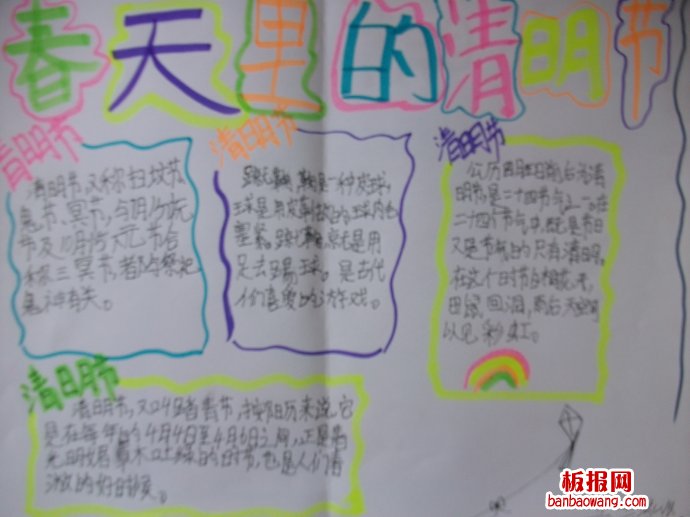 春天里的清明节
清明节
清明节又称扫坟节、
鬼节、冥节，与7月15元
节及10月15下元节合
称三冥节，都与祭祀
鬼神有关。
清明节
蹴鞠，鞠是一种皮球，
球是用皮革做的，球内毛
塞紧。蹴鞠，就是用
足去踢球。是古代
人们喜爱的游戏。
清明节
清明节是二十四节气之一。在
二十四个节气中，既是节日
又是节气的只有清明。
在这个时节
田鼠回洞，雨后天空可
以见彩虹。
清明节
清明节，又叫踏青节，按阳历来说，它
是在每年的4月4日至4月6日之间，正是春
光明媚草木吐绿的时节，也是人们春
游的好时候。
板报网
banbaowang.com